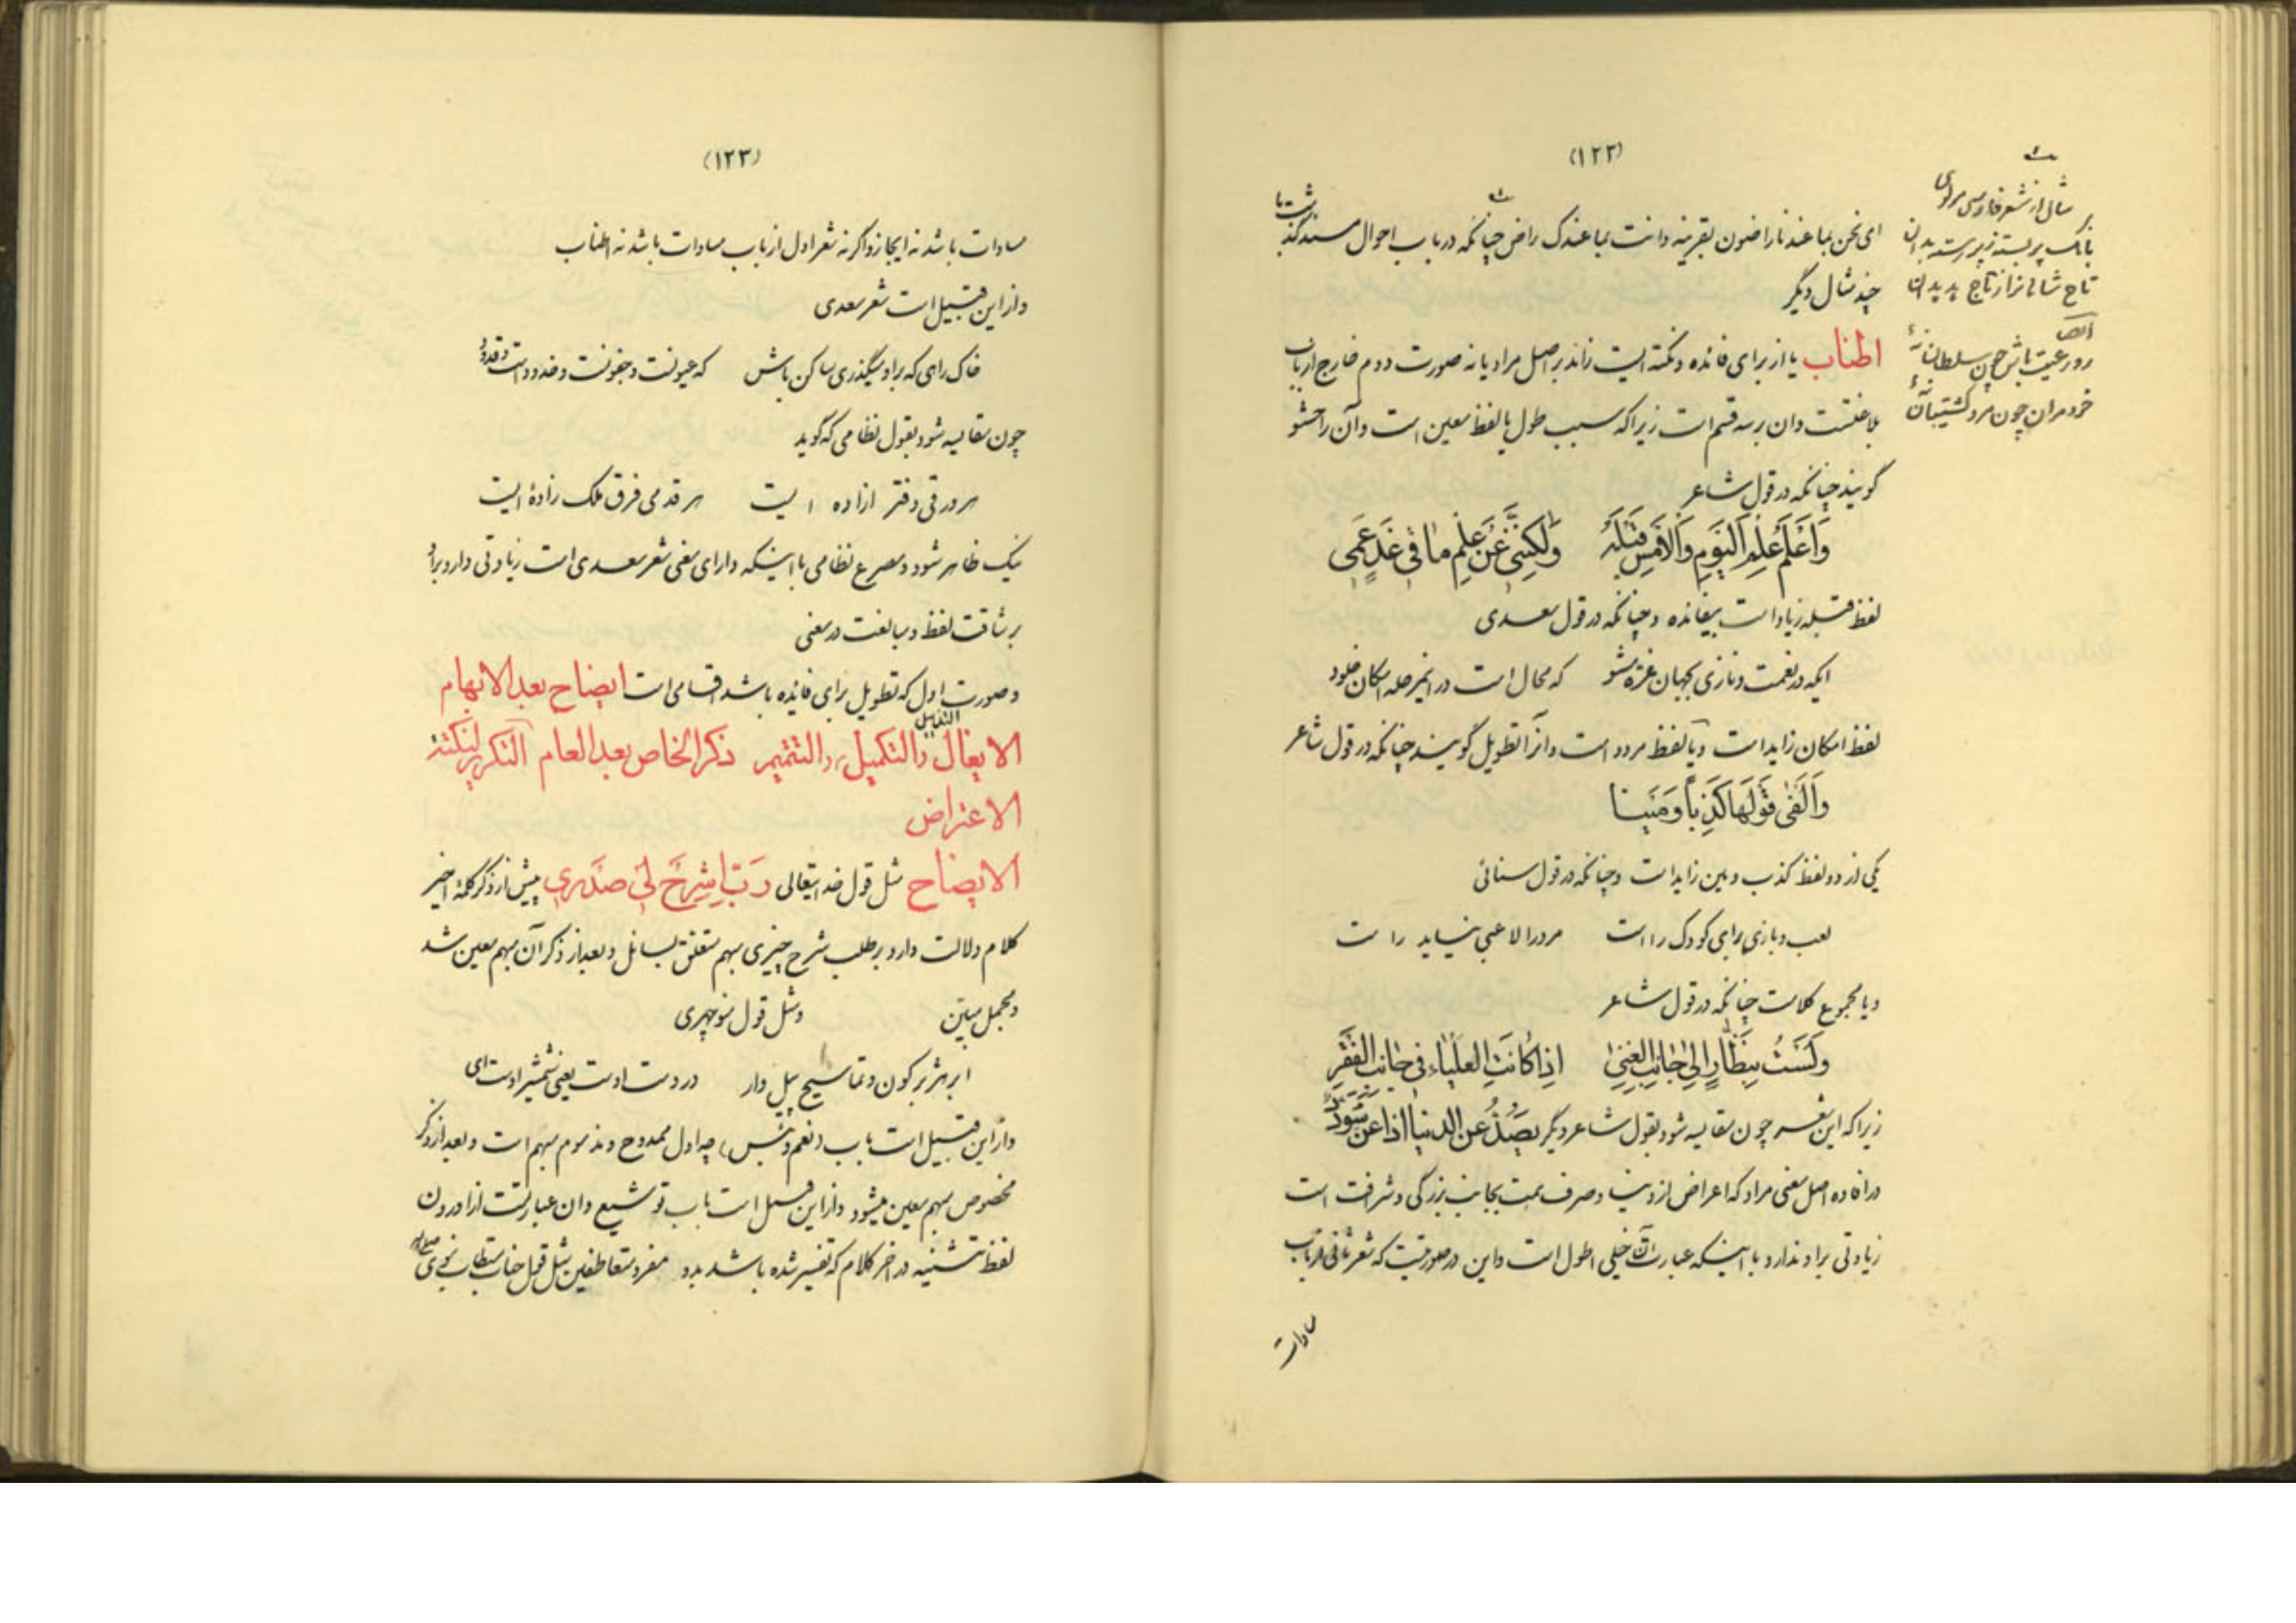 (۱۲۲)
ای نحن بما عندنا راضون بقرینه وانت بما عندک راض چنانکه در باب احوال مسند گذشت با
چند مثال دیگر
اطناب یا از برای فائده و نکته ایست زائد بر اصل مراد یا نه صورت دوم خارج از باب
بلاغتست و ان بر سه قسم است زیرا که سبب طول یا لفظ معین است و آن را حشو
گویند چنانکه در قول شاعر
وَاَعْلَمُ عِلْمَ الْیَوْمِ وَالْاَمْسِ قَبْلَهُ وَلٰکِنَّنِی عَنْ عِلْمِ مٰا فِی غَدٍ عَمِی
لفظ قبله زیاد است بیفائده و چنانکه در قول سعدی
ایکه در نعمت و نازی بجهان غره مشو که محال است در اینمرحله امکان خلود
لفظ امکان زاید است و یا لفظ مردد است و انرا تطویل گویند چنانکه در قول شاعر
وَاَلْفیٰ قَوْلَهَا کَذِباً وَمَیْنا
یکی از دو لفظ کذب و مین زاید است و چنانکه در قول سنائی
لعب و بازی برای کودک راست مرد را لاعبی نیاید راست
و یا مجموع کلامست چنانکه در قول شاعر
وَلَسْتُ بِنَظّٰارٍ اِلیٰ جٰانِبِ الْغِنیٰ اِذٰا کٰانَتِ الْعَلْیٰاءُ فِی جٰانِبِ الْفَقْرِ
زیرا که این شعر چون مقایسه شود بقول شاعر دیگر یَصُدُّ عَنِ الدُّنْیٰا اِذٰا عَنَّ سُودَدٌ
در افاده اصل معنی مراد که اعراض از دنیا و صرف همت بجانب بزرگی و شرافت است
زیادتی بر او ندارد با اینکه عبارت آن خیلی اطول است و این در صورتیست که شعر ثانی از باب
مساوات
مثال از شعر فارسی مولوی
بانک بر بسته ز بر رسته بدان
تاج شاهانرا ز تاج هدهدان
ایضاً
رو رعیت باش چون سلطان نهٔ
خود مران چون مرد کشتیبان نهٔ
(۱۲۳)
مساوات باشد نه ایجاز و اگر نه شعر اول از باب مساوات باشد نه اطناب
و از این قبیل است شعر سعدی
خاک راهی که بر او میگذری ساکن باش که عیونست و جفونست و خدود است و قدود
چون مقایسه شود بقول نظامی که گوید
هر ورقی دفتر ازاده ایست هر قدمی فرق ملک زادهٔ ایست
نیک ظاهر شود و مصرع نظامی با اینکه دارای معنی شعر سعدی است زیادتی دارد بر او
برشاقت لفظ و مبالغت در معنی
و صورت اول که تطویل برای فائده باشد اقسامی است ایضاح بعد الابهام
الایغال التذییل والتکمیل والتتمیم ذکر الخاص بعد العام التکریر لنکتة
الاعتراض
الایضاح مثل قول خدایتعالی رَبِّ اشْرَحْ لِی صَدْرِی پیش از ذکر کلمهٔ اخیر
کلام دلالت دارد بر طلب شرح چیزی مبهم متعلق بسائل و بعد از ذکر آن مبهم معین شد
و مجمل مبیّن و مثل قول منوچهری
ابر هزبر گون و تماسیح پیل دار در دست اوست یعنی شمشیر اوست ای
و از این قبیل است باب (نعم و بئس) چه اول ممدوح و مذموم مبهم است و بعد از ذکر
مخصوص مبهم معین میشود و از این قبیل است باب توشیع و ان عبارتست از اوردن
لفظ تثنیه در اخر کلام که تفسیر شده باشد بدو مفرد متعاطفین مثل قول جناب مستطاب نبوی صلی الله